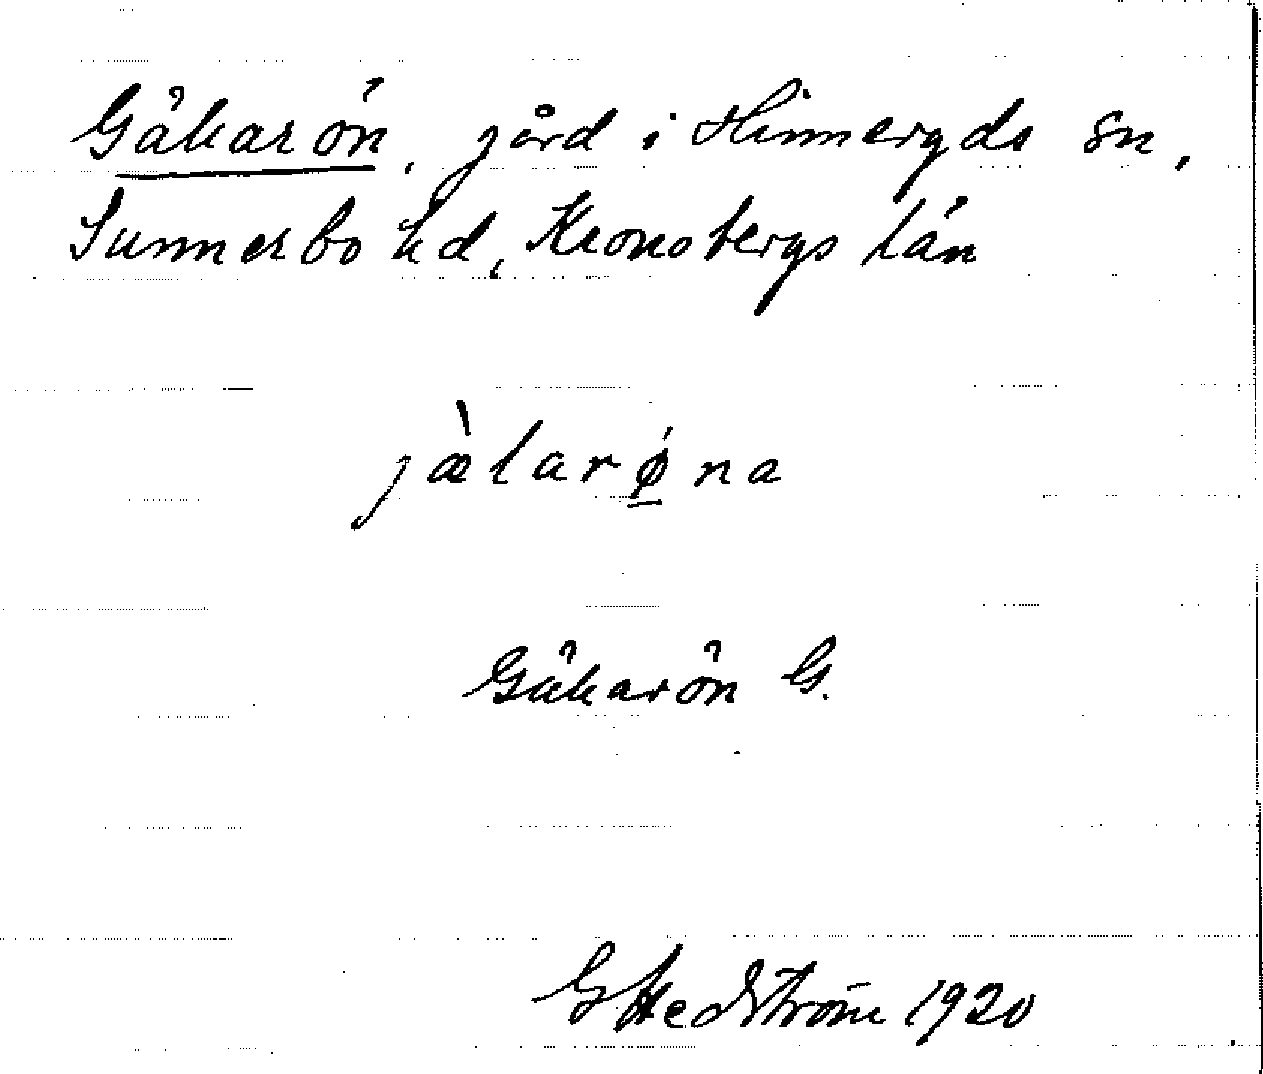 Gäkarön, gård i Hinneryds sn,
Sunnerbo hd, Kronobergs län
jæ̀karǿ̲na
Gäkarön G.
G Hedström 1920